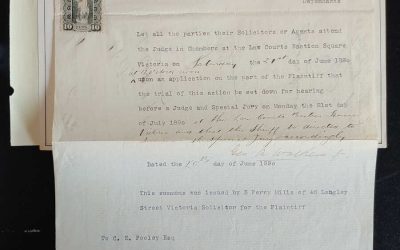 Defendants
10 10
Let all the parties their Solicitors or Agents attend
the Judge in Chambers at the Law Courts Bastion Square,
Victoria on Saturday the day of June 189
upon an application on the part of the Plaintiff that
the trial of this action be set down for hearing
before a Judge and Special Jury on Monday the 21st day
of July 189 at the Law Courts Bastion Square
Victoria and that the Sheriff be directed to
accordingly
Dated the day of June 189
This summons was issued by S Perry Mills of 46 Langley
Street Victoria Solicitor for the Plaintiff
To C. E. Pooley Esq